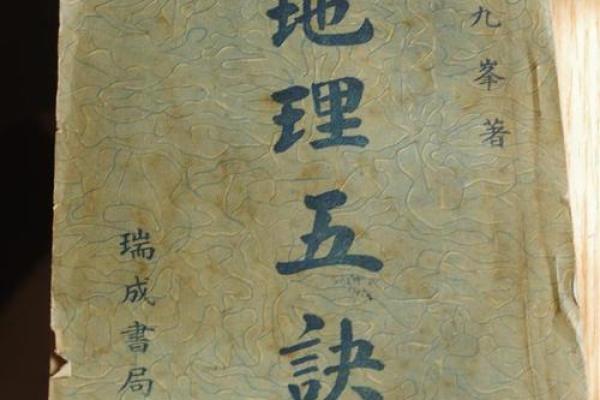 九峯著
地理五訣
瑞成書局